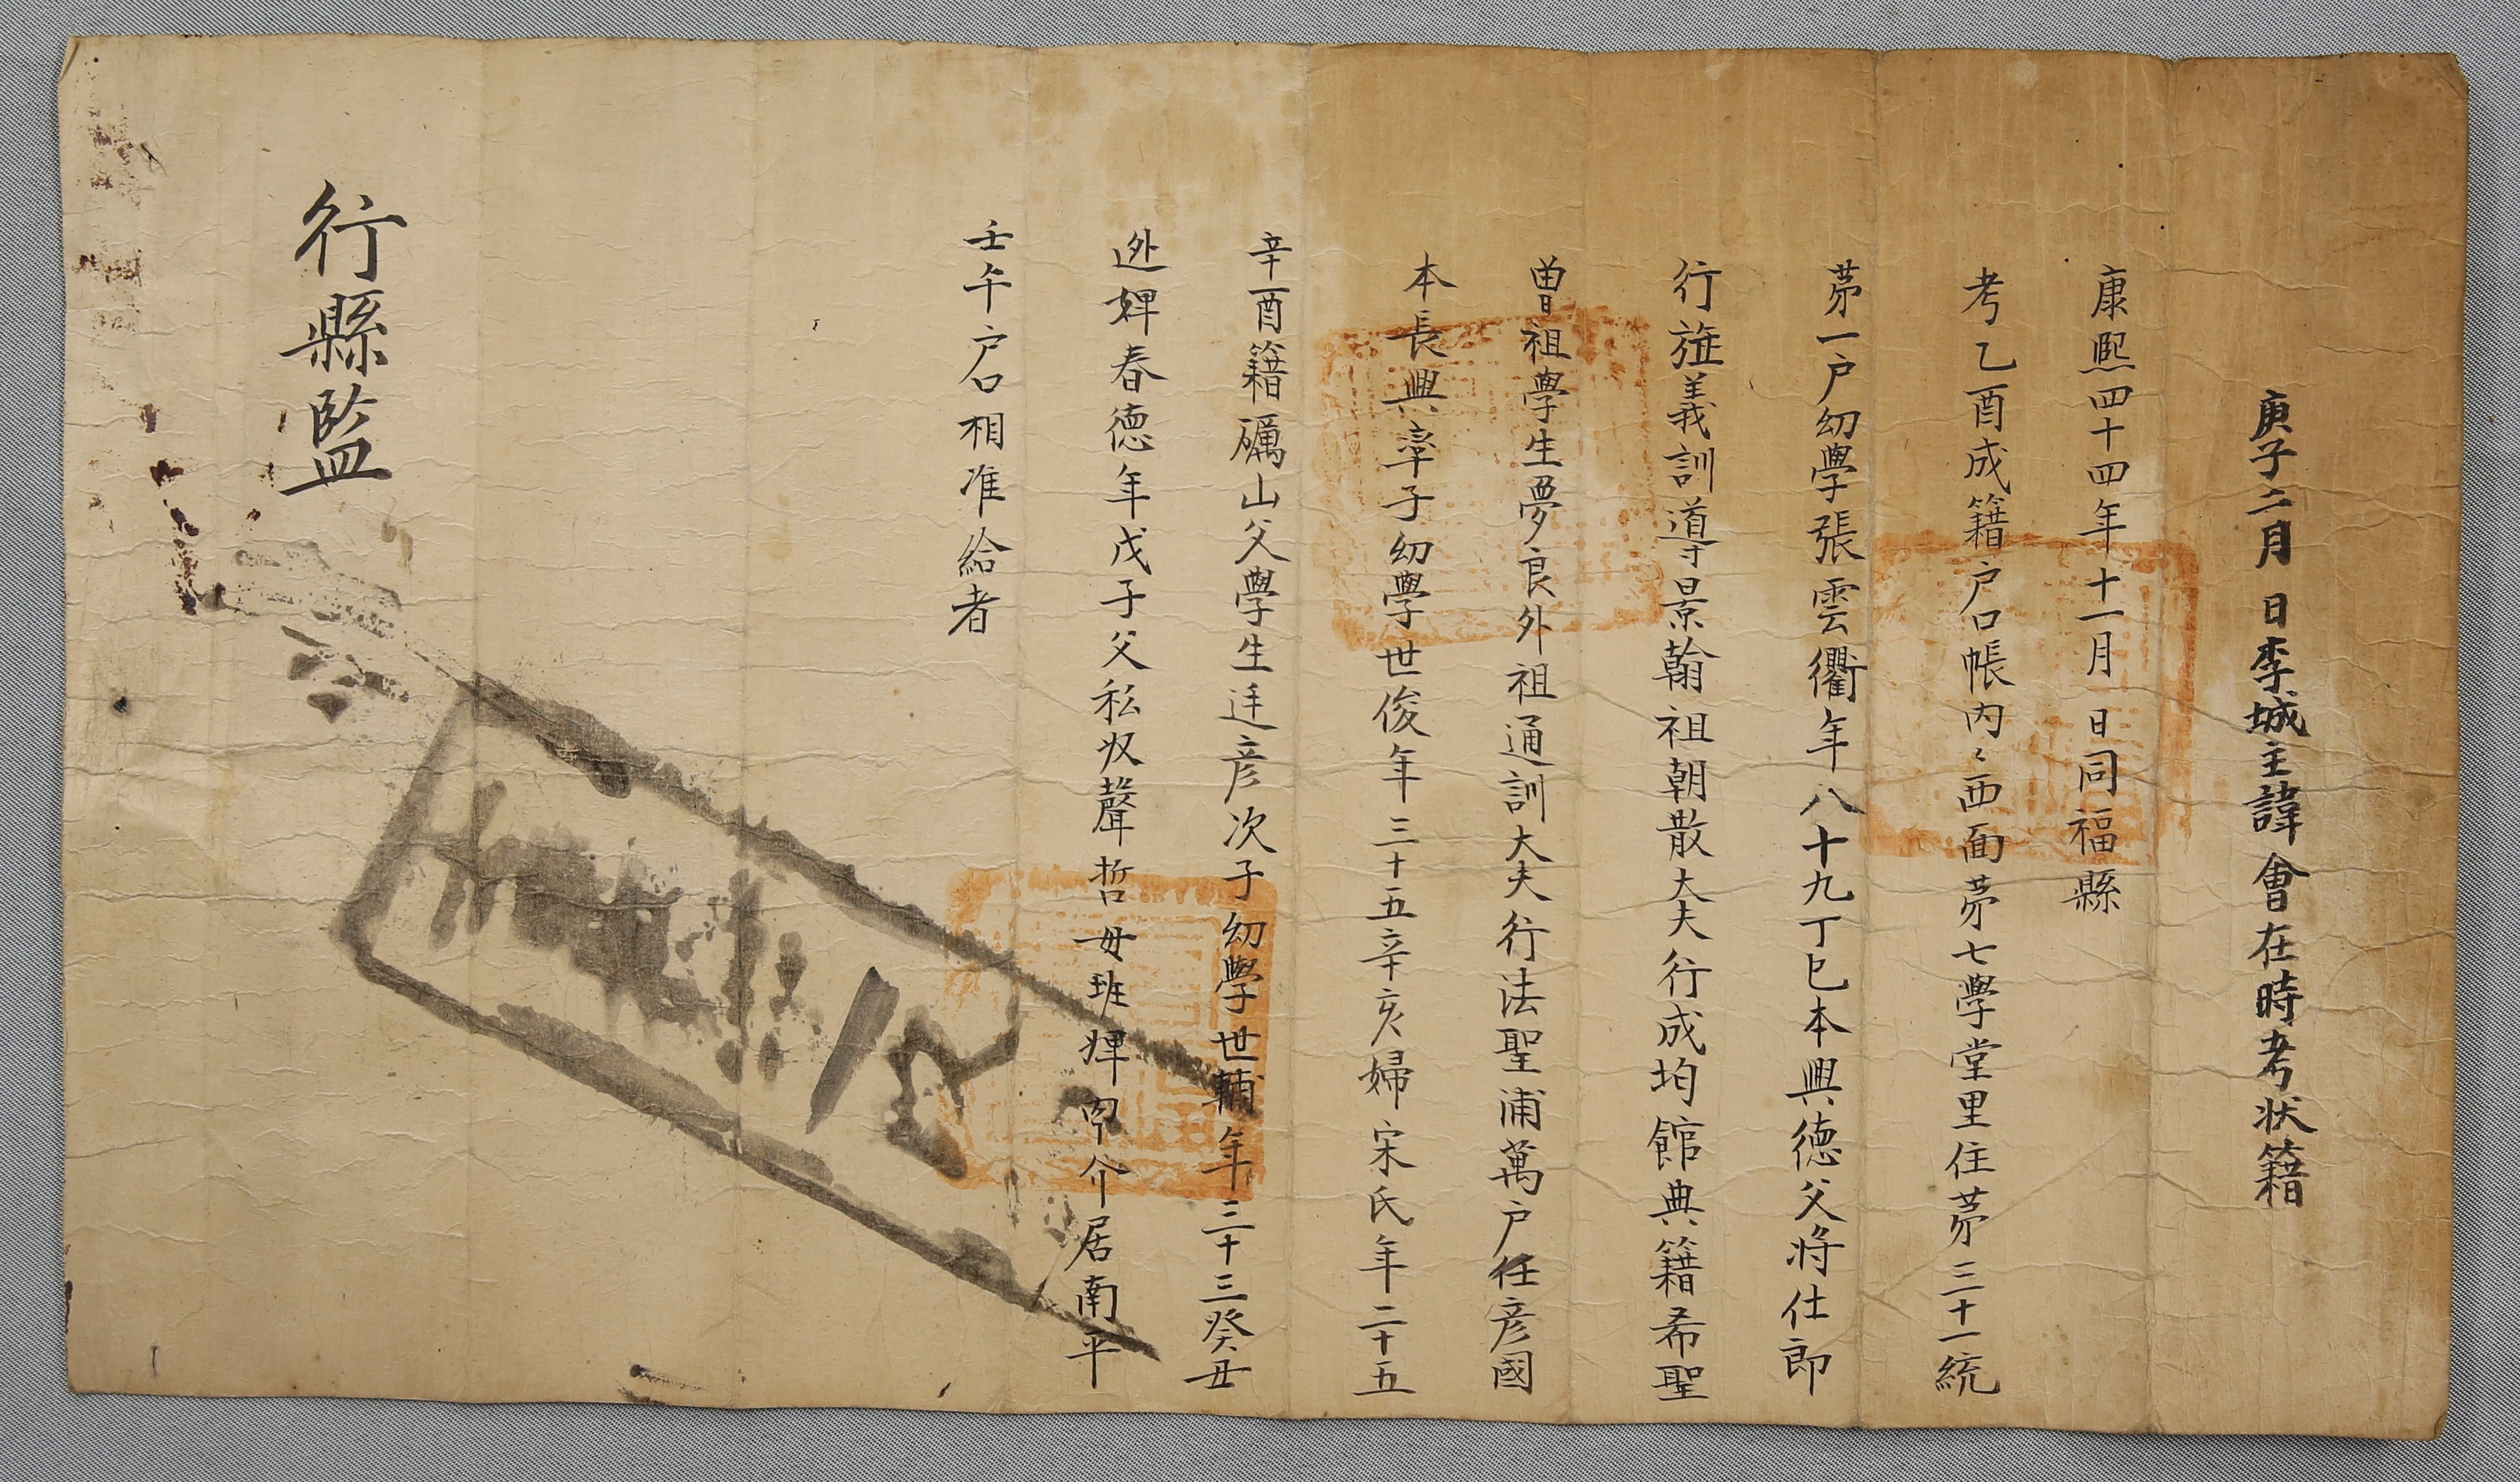 庚子二月 日李城主諱會在時考状籍
康熙四十四年十一月 日同福縣
考乙酉成籍户口帳内ミ西面苐七學堂里住苐三十一統
苐一户幼學張雲衢年八十九丁巳本興德父將仕郎
行㫌義訓導景翰祖朝散大夫行成均館典籍希聖
曾祖學生夢良外祖通訓大夫行法聖浦萬户任彦國
本長興率子幼學世俊年三十五辛亥婦宋氏年二十五
辛酉籍礪山父學生廷彦次子幼學世輔年三十三癸丑
逃婢春德年戊子父私奴聲哲母班婢 介居南平
壬午户口相准給者
行縣監